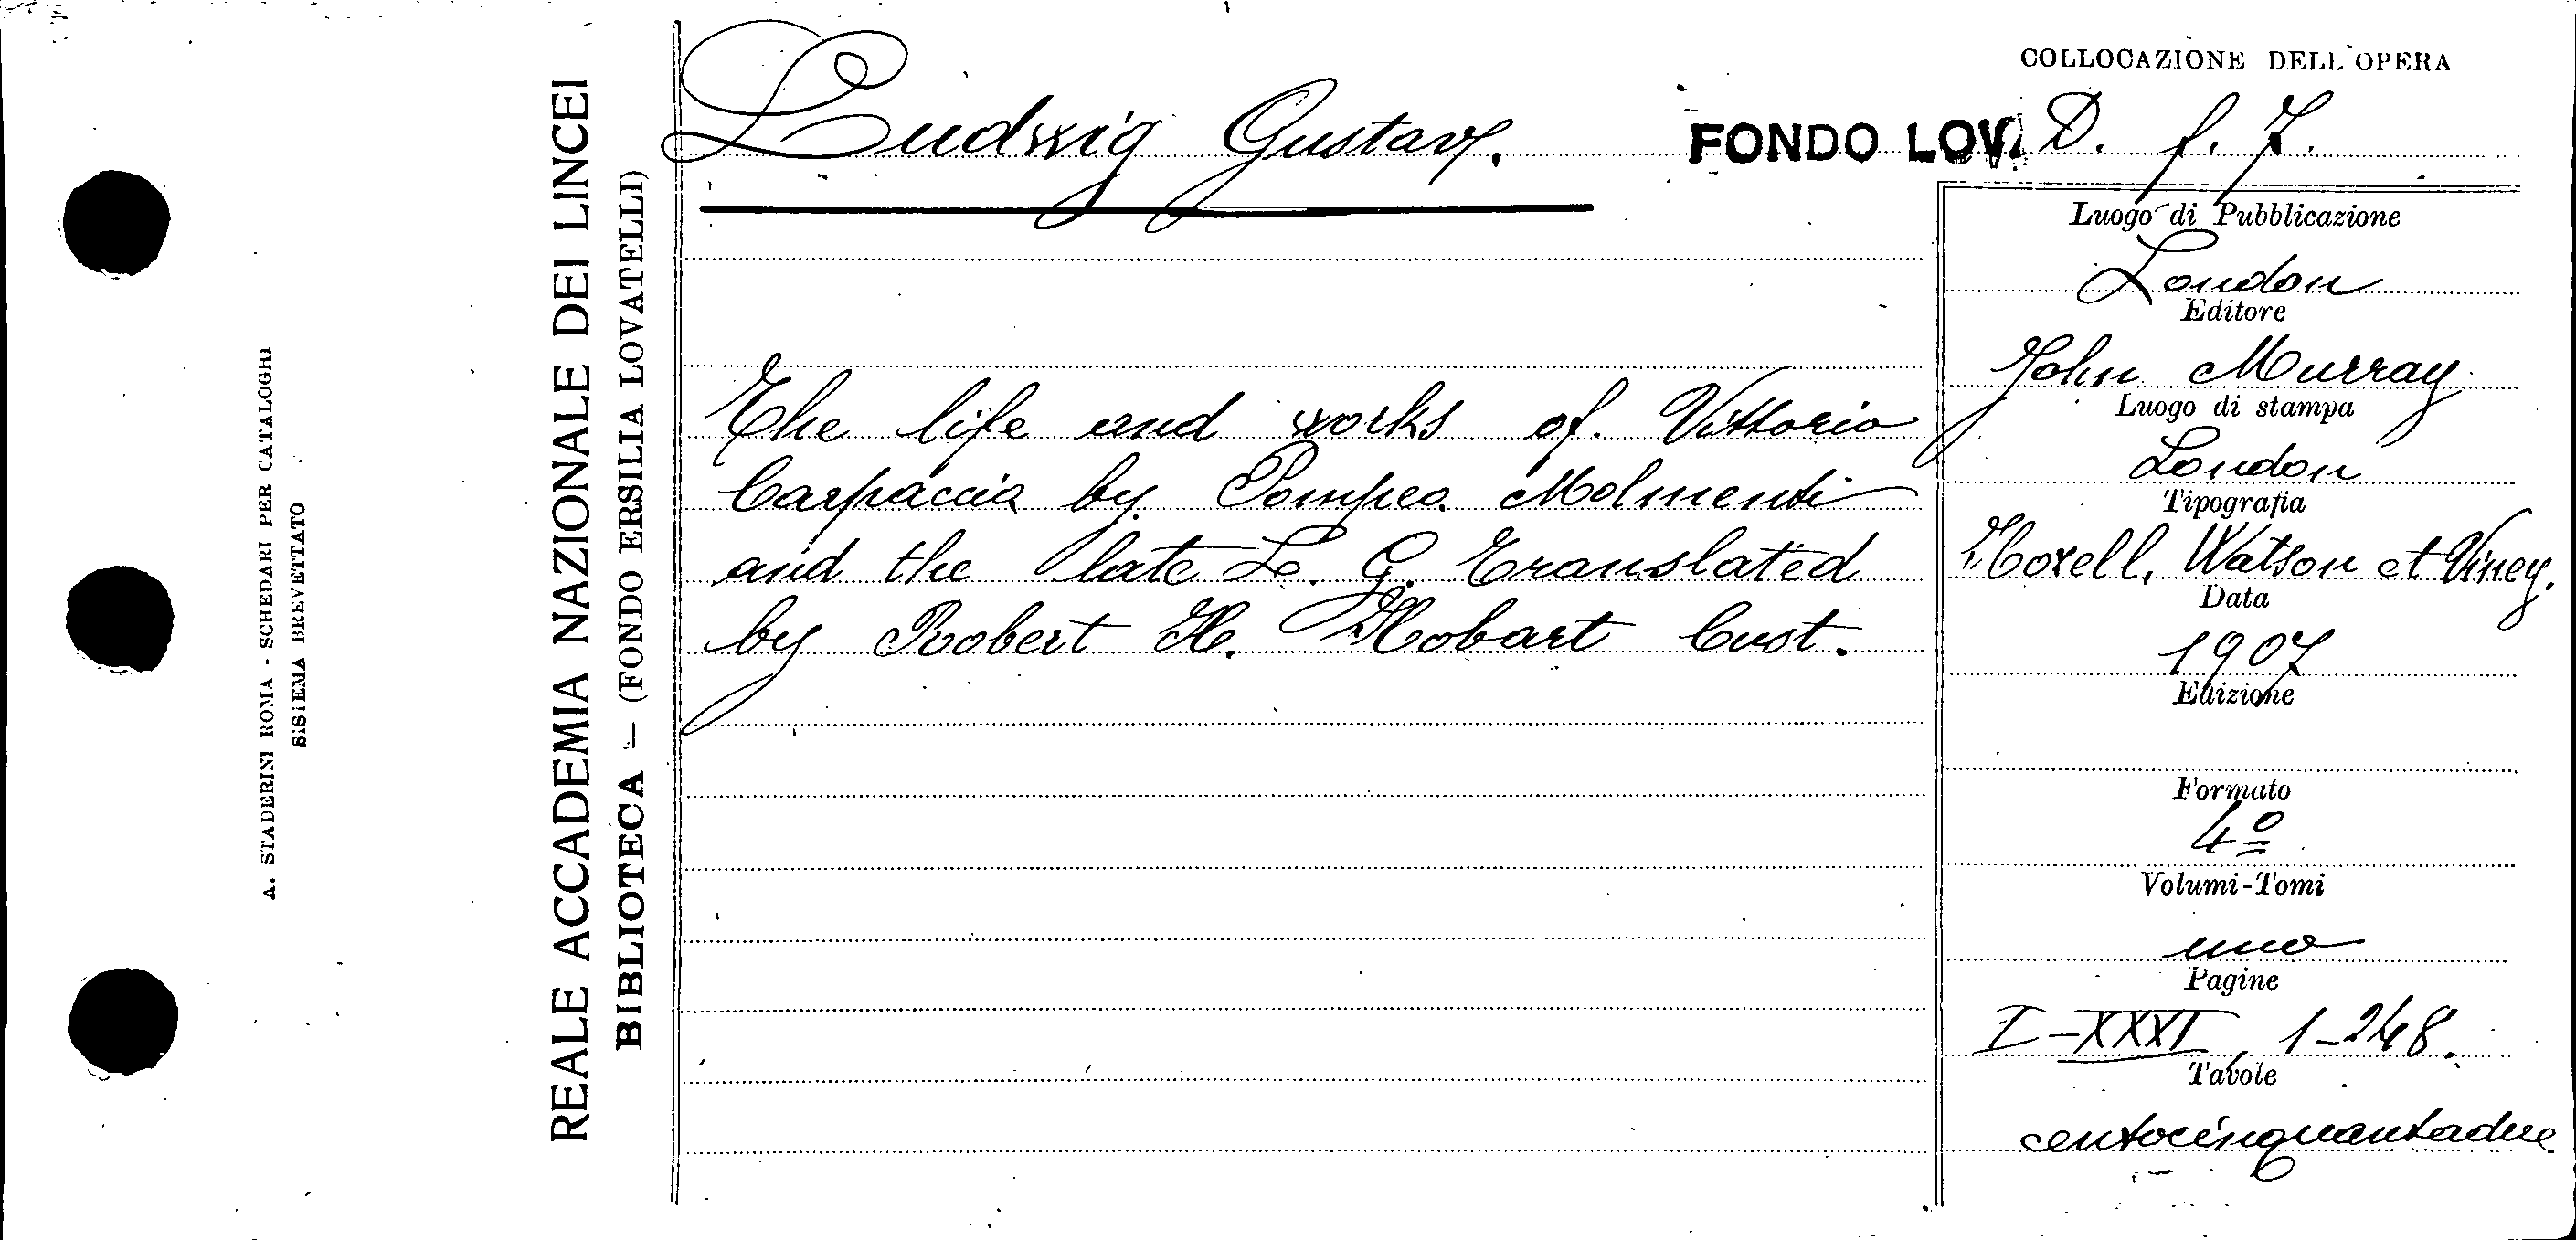 A. STADERINI ROMA - SCHEDARI PER CATALOGHI
SISTEMA BREVETTATO
REALE ACCADEMIA NAZIONALE DEI LINCEI
BIBLIOTECA - (FONDO ERSILIA LOVATELLI)
Ludwig Gustav.
The life and works of. Vittorio
Carpaccio by Pompeo Molmenti
and the late L. G. Translated
by Robert H. Hobart Cust.
COLLOCAZIONE DELL'OPERA
FONDO LOV. D. f. 7.
Luogo di Pubblicazione
London
Editore
John Murray
Luogo di stampa
London
Tipografia
Hazell, Watson et Viney.
Data
1907
Edizione
Formato
4º
Volumi-Tomi
uno
Pagine
I-XXXI, 1-248.
Tavole
centocinquantadue